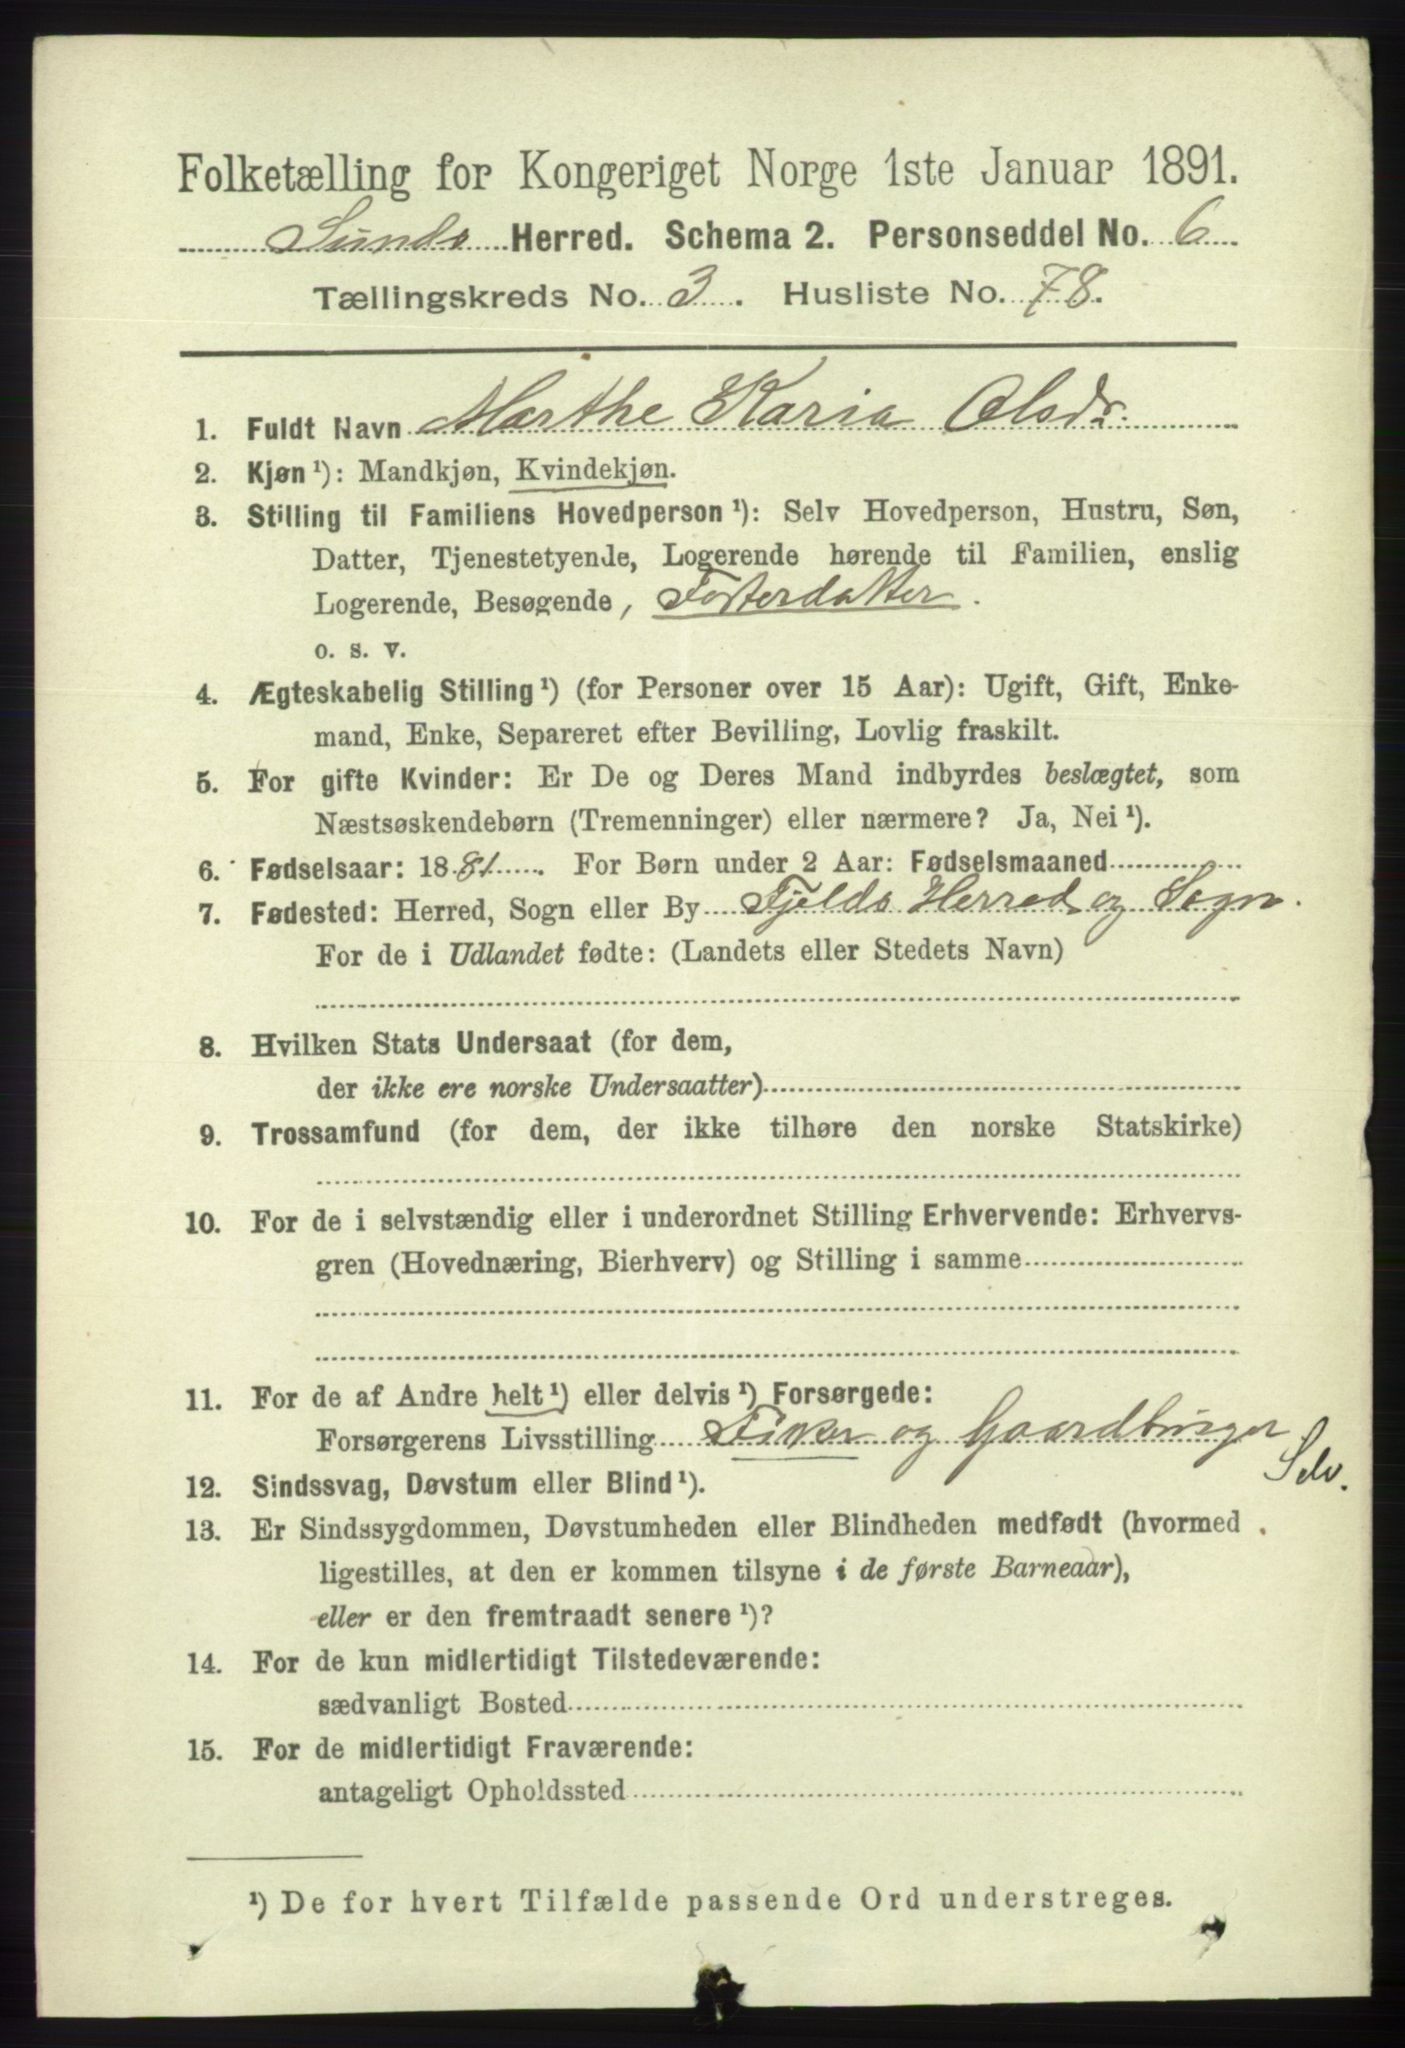 Folketælling for Kongeriget Norge 1ste Januar 1891.
Sunds Herred. Schema 2. Personseddel No. 6
Tællingskreds No. 3. Husliste No. 78.
1. Fuldt Navn Marthe Karia Olsdr.
2. Kjøn¹): Mandkjøn, Kvindekjøn.
3. Stilling til Familiens Hovedperson¹): Selv Hovedperson, Hustru, Søn,
Datter, Tjenestetyende, Logerende hørende til Familien, enslig
Logerende, Besøgende, Fosterdatter.
o. s. v.
4. Ægteskabelig Stilling¹) (for Personer over 15 Aar): Ugift, Gift, Enke-
mand, Enke, Separeret efter Bevilling, Lovlig fraskilt.
5. For gifte Kvinder: Er De og Deres Mand indbyrdes beslægtet, som
Næstsøskendebørn (Tremenninger) eller nærmere? Ja, Nei¹).
6. Fødselsaar: 1881. For Børn under 2 Aar: Fødselsmaaned
7. Fødested: Herred, Sogn eller By Fjelds Herred og Sogn.
For de i Udlandet fødte: (Landets eller Stedets Navn)
8. Hvilken Stats Undersaat (for dem,
der ikke ere norske Undersaatter)
9. Trossamfund (for dem, der ikke tilhøre den norske Statskirke)
10. For de i selvstændig eller i underordnet Stilling Erhvervende: Erhvervs-
gren (Hovednæring, Bierhverv) og Stilling i samme
11. For de af Andre helt¹) eller delvis¹) Forsørgede:
Forsørgerens Livsstilling Fisker og Gaardbruger
Selv.
12. Sindssvag, Døvstum eller Blind¹).
13. Er Sindssygdommen, Døvstumheden eller Blindheden medfødt (hvormed
ligestilles, at den er kommen tilsyne i de første Barneaar),
eller er den fremtraadt senere¹)?
14. For de kun midlertidigt Tilstedeværende:
sædvanligt Bosted
15. For de midlertidigt Fraværende:
antageligt Opholdssted
¹) De for hvert Tilfælde passende Ord understreges.